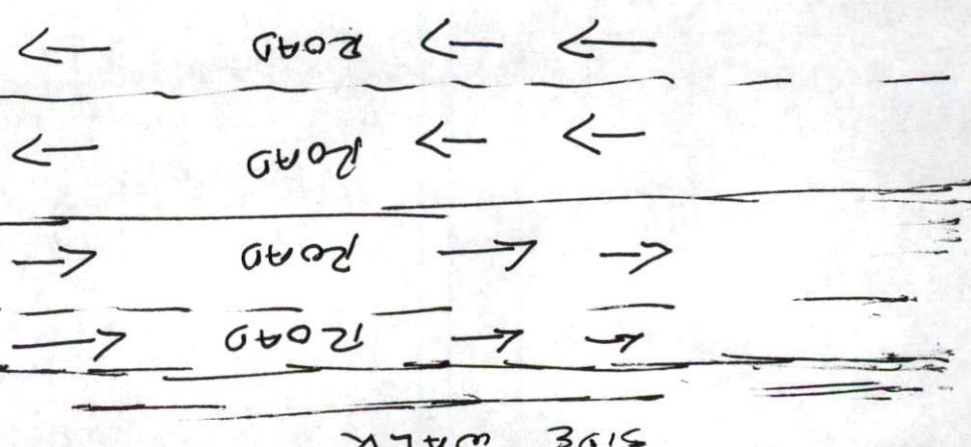 SIDE WALK
ROAD
ROAD
ROAD
ROAD